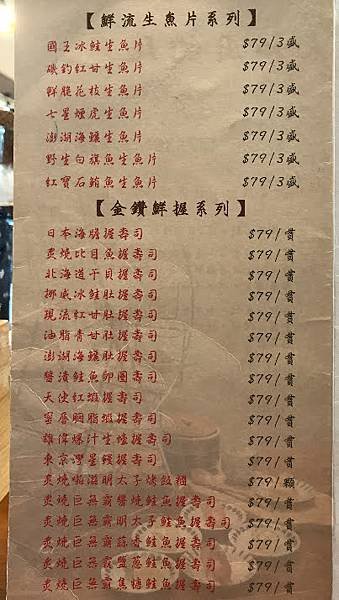 【鮮流生魚片系列】
國王冰鮭生魚片 $79/3盛
磯釣紅甘生魚片 $79/3盛
鮮脆花枝生魚片 $79/3盛
七星煙虎生魚片 $79/3盛
澎湖海鱺生魚片 $79/3盛
野生白旗魚生魚片 $79/3盛
紅寶石鮪魚生魚片 $79/3盛
【金鑽鮮握系列】
日本海膽握壽司 $79/貫
炙燒比目魚握壽司 $79/貫
北海道干貝握壽司 $79/貫
挪威冰鮭肚握壽司 $79/貫
現流紅甘肚握壽司 $79/貫
油脂青甘肚握壽司 $79/貫
澎湖海鱺肚握壽司 $79/貫
醬漬鮭魚卵團壽司 $79/貫
天使紅蝦握壽司 $79/貫
蜜唇胭脂蝦握壽司 $79/貫
雄偉爆汁生蠔握壽司 $79/貫
東京灣星鰻握壽司 $79/貫
炙燒啵滋明太子烤飯糰 $79/顆
炙燒巨無霸醬燒鮭魚握壽司 $79/貫
炙燒巨無霸明太子鮭魚握壽司 $79/貫
炙燒巨無霸蒜香鮭魚握壽司 $79/貫
炙燒巨無霸鹽蔥鮭魚握壽司 $79/貫
炙燒巨無霸焦糖鮭魚握壽司 $79/貫